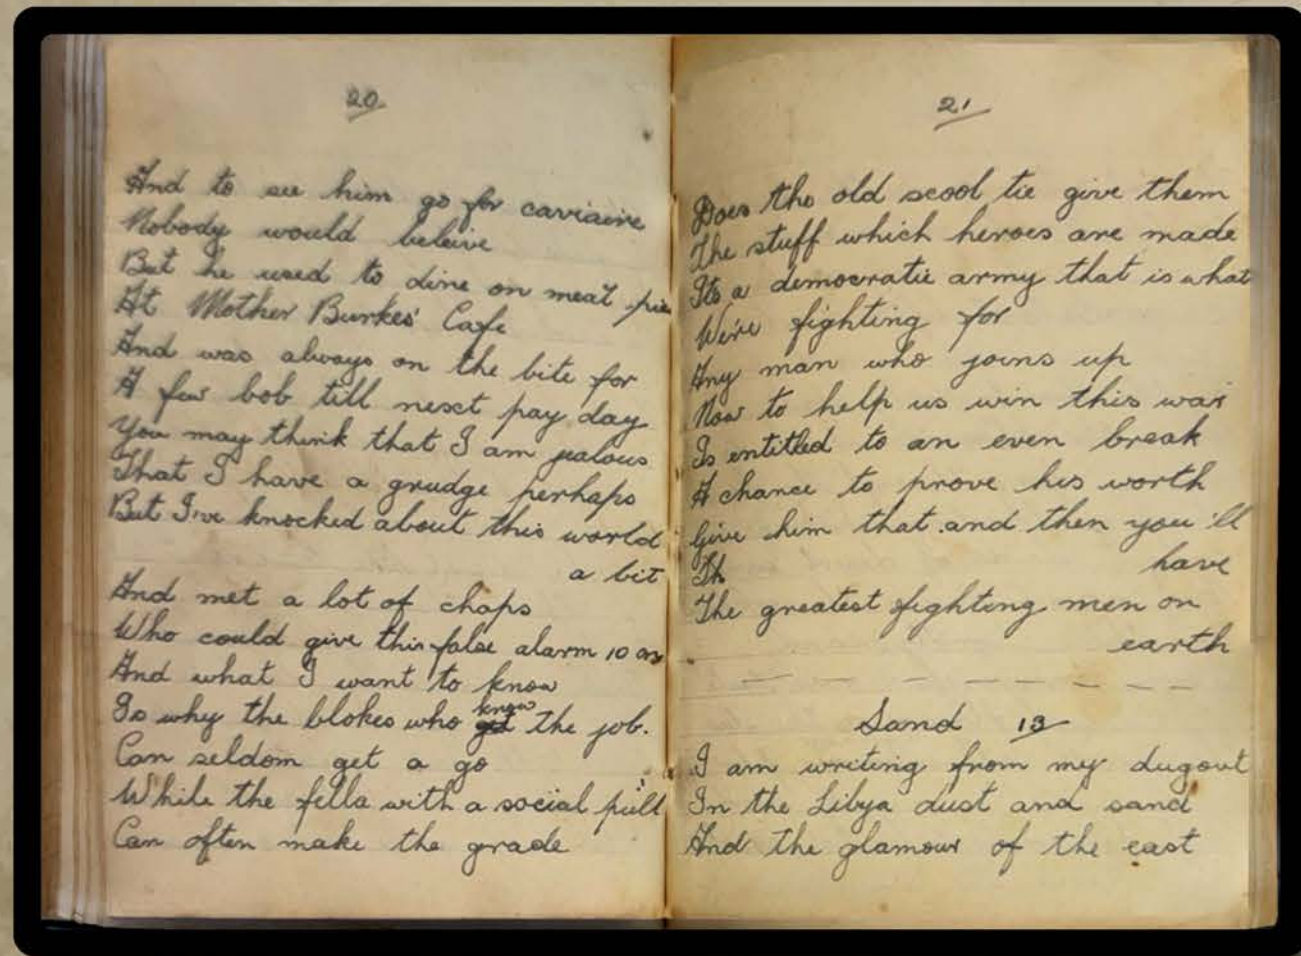 20
And to see him go for caviaire
Nobody would beleive
But he used to dine on meat pies
At Mother Burkes' Cafe
And was always on the bite for
A few bob till nesct pay day
You may think that I am jealous
That I have a grudge perhaps
But I've knocked about this world
a bit
And met a lot of chaps
Who could give this false alarm 10 on
And what I want to know
Is why the blokes who know the job.
Can seldom get a go
While the fella with a social pull
Can often make the grade
21
Does the old scool tie give them
The stuff which heroes are made
Its a democratic army that is what
We're fighting for
Any man who joins up
Now to help us win this war
Is entitled to an even break
A chance to prove his worth
Give him that and then you'll
Th have
The greatest fighting men on
earth
Sand 13
I am writing from my dugout
In the Libya dust and sand
And the glamour of the east